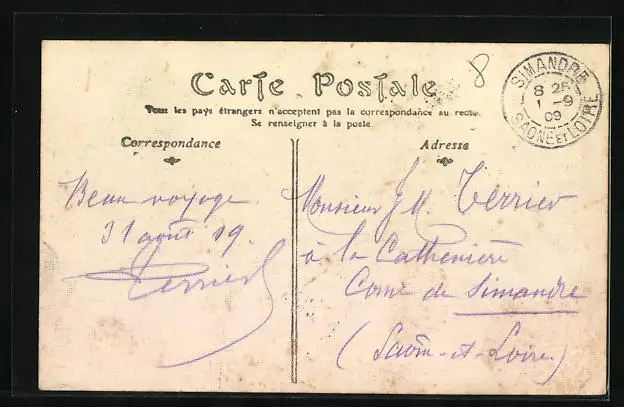 8
SIMANDRE
8 25
1 -9
09
SAONE ET LOIRE
Carte Postale
Tous les pays étrangers n'acceptent pas la correspondance au recto.
Se renseigner à la poste.
Correspondance
Adresse
Beau voyage.
31 août 09.
Terrier
Monsieur J M. Terrier
à la Cathenière
Cone de Simandre
(Saône-et-Loire)